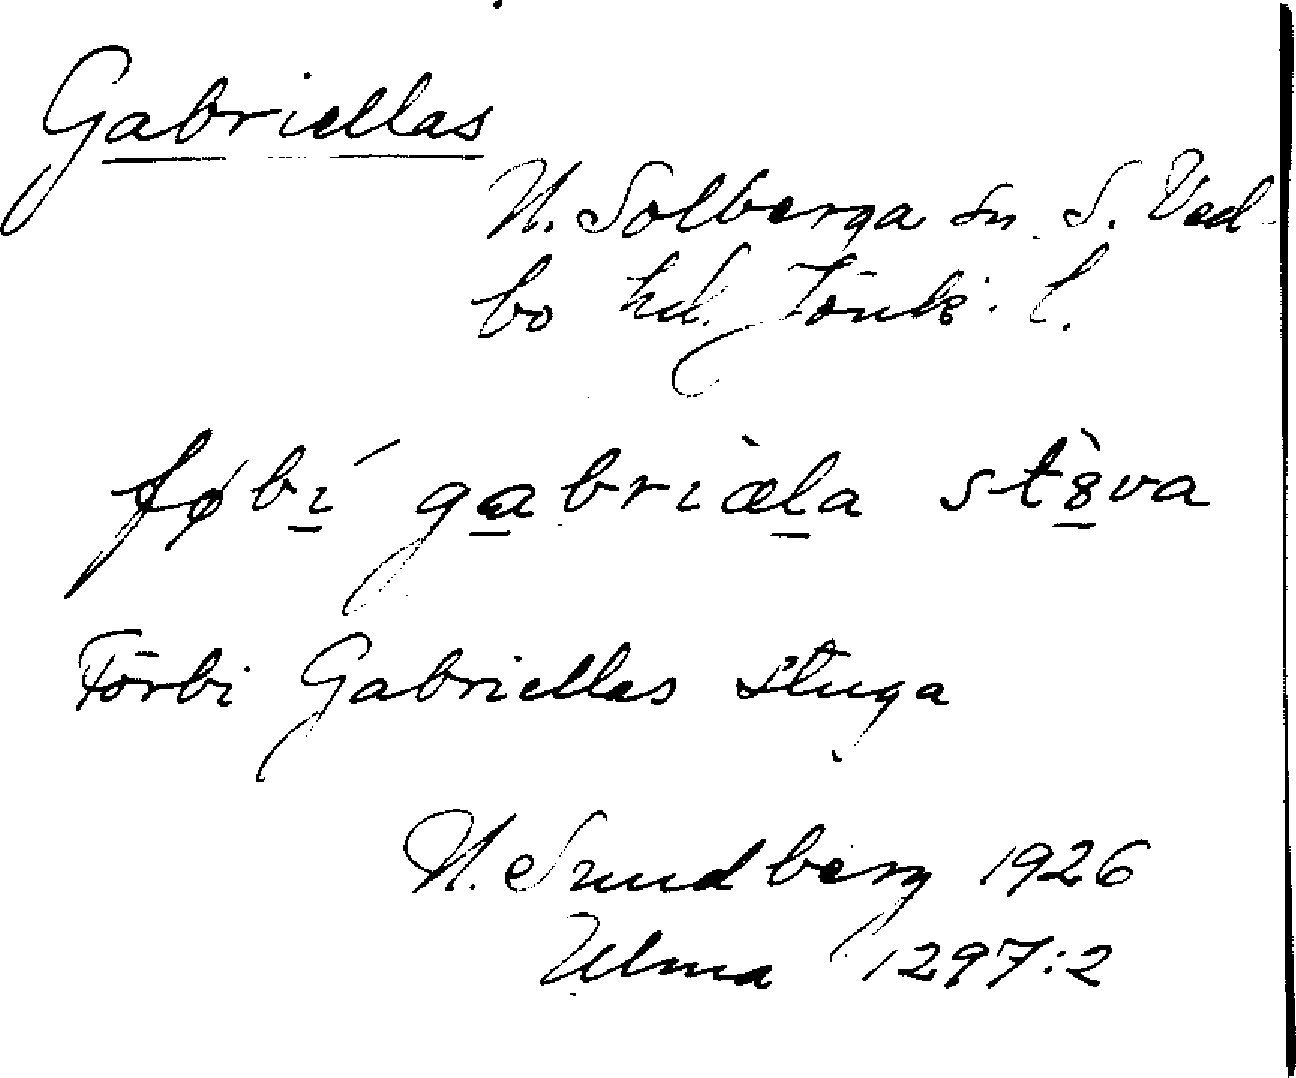 Gabriellas
N. Solberga sn. S. Ved-
bo hd. Jönk. l.
føbí gabriæ̀la st8̀va
Förbi Gabriellas stuga
N. Sundberg 1926
Ulma 1297:2